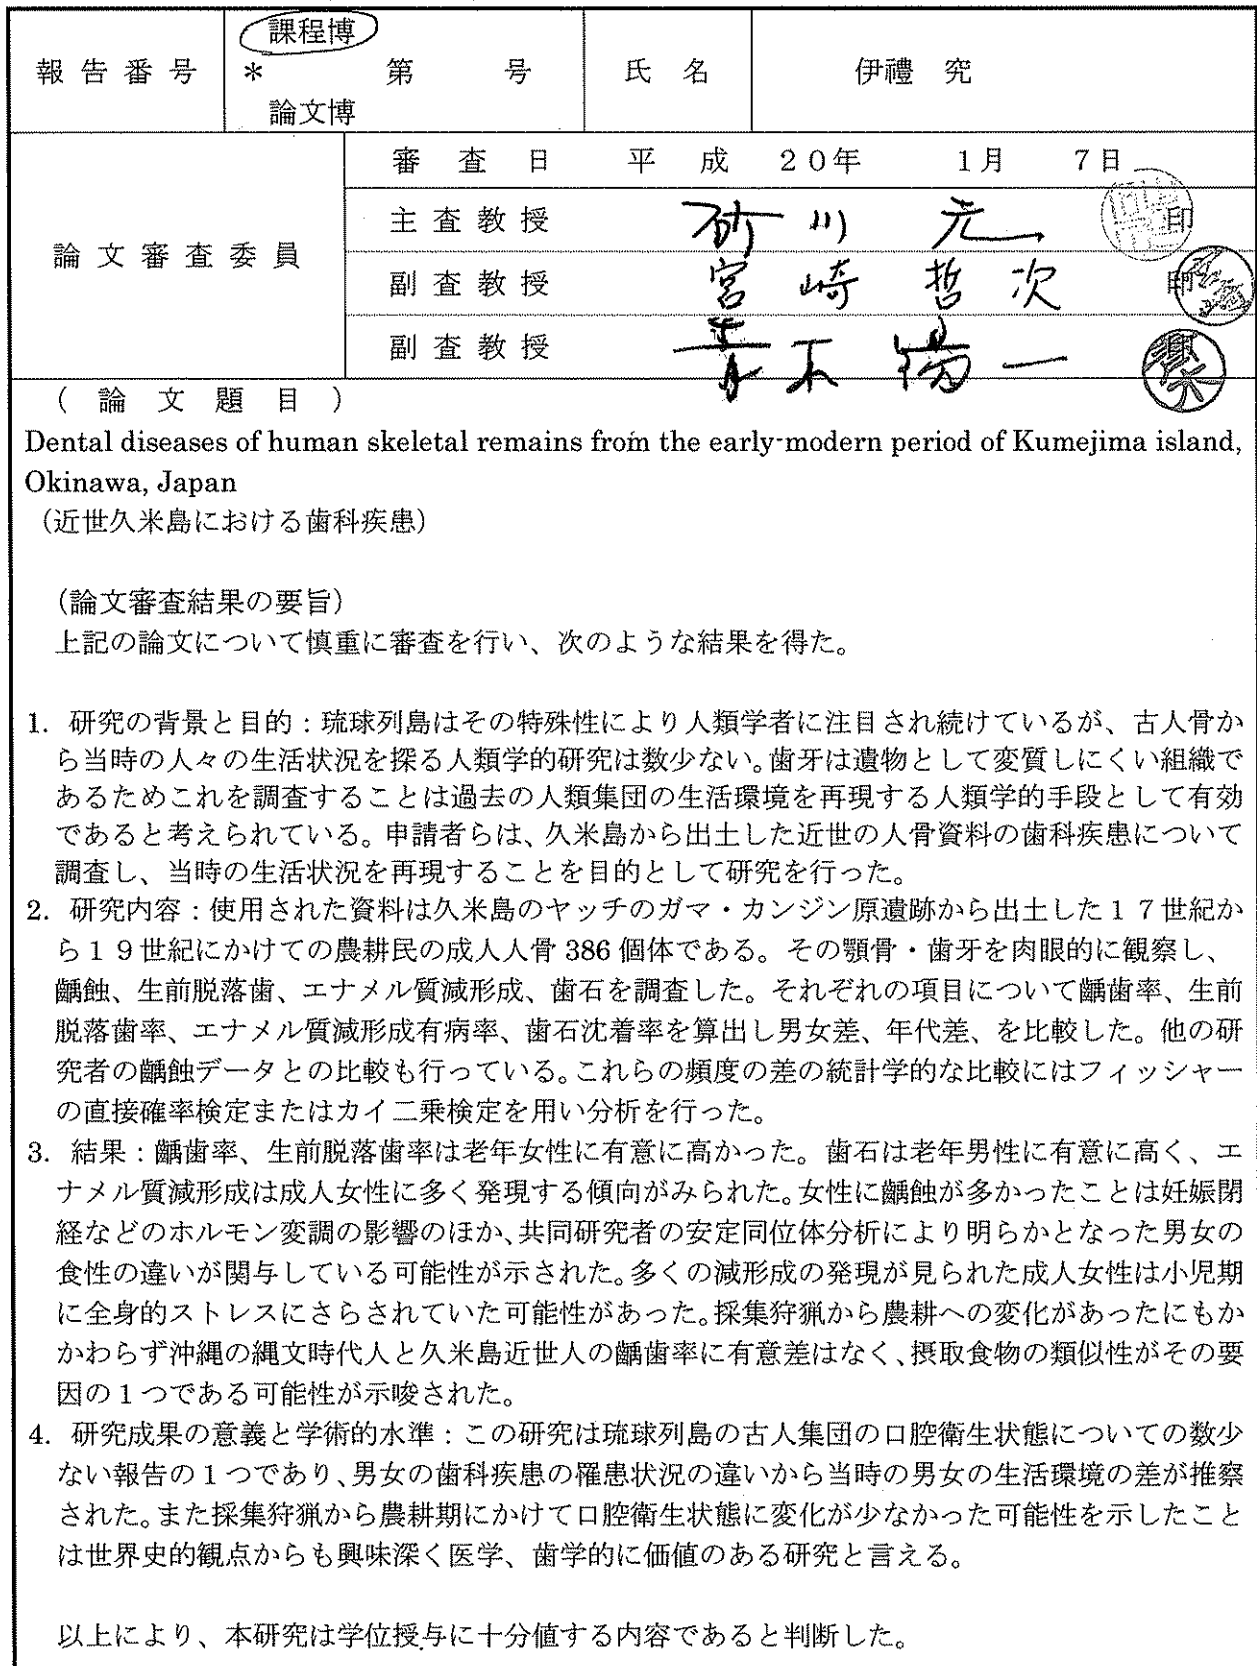 課程博
報告番号 * 第 号 氏名 伊禮 究
論文博
論文審査委員
審査日 平成 20年 1月 7日
主査教授 砂川 元 印
副査教授 宮崎 哲次 印
副査教授 青木 陽一
(論文題目)
Dental diseases of human skeletal remains from the early-modern period of Kumejima island,
Okinawa, Japan
(近世久米島における歯科疾患)
(論文審査結果の要旨)
上記の論文について慎重に審査を行い、次のような結果を得た。
1. 研究の背景と目的:琉球列島はその特殊性により人類学者に注目され続けているが、古人骨か
ら当時の人々の生活状況を探る人類学的研究は数少ない。歯牙は遺物として変質しにくい組織で
あるためこれを調査することは過去の人類集団の生活環境を再現する人類学的手段として有効
であると考えられている。申請者らは、久米島から出土した近世の人骨資料の歯科疾患について
調査し、当時の生活状況を再現することを目的として研究を行った。
2. 研究内容:使用された資料は久米島のヤッチのガマ・カンジン原遺跡から出土した17世紀か
ら19世紀にかけての農耕民の成人人骨 386 個体である。その顎骨・歯牙を肉眼的に観察し、
齲蝕、生前脱落歯、エナメル質減形成、歯石を調査した。それぞれの項目について齲歯率、生前
脱落歯率、エナメル質減形成有病率、歯石沈着率を算出し男女差、年代差、を比較した。他の研
究者の齲蝕データとの比較も行っている。これらの頻度の差の統計学的な比較にはフィッシャー
の直接確率検定またはカイ二乗検定を用い分析を行った。
3. 結果:齲歯率、生前脱落歯率は老年女性に有意に高かった。歯石は老年男性に有意に高く、エ
ナメル質減形成は成人女性に多く発現する傾向がみられた。女性に齲蝕が多かったことは妊娠閉
経などのホルモン変調の影響のほか、共同研究者の安定同位体分析により明らかとなった男女の
食性の違いが関与している可能性が示された。多くの減形成の発現が見られた成人女性は小児期
に全身的ストレスにさらされていた可能性があった。採集狩猟から農耕への変化があったにもか
かわらず沖縄の縄文時代人と久米島近世人の齲歯率に有意差はなく、摂取食物の類似性がその要
因の1つである可能性が示唆された。
4. 研究成果の意義と学術的水準:この研究は琉球列島の古人集団の口腔衛生状態についての数少
ない報告の1つであり、男女の歯科疾患の罹患状況の違いから当時の男女の生活環境の差が推察
された。また採集狩猟から農耕期にかけて口腔衛生状態に変化が少なかった可能性を示したこと
は世界史的観点からも興味深く医学、歯学的に価値のある研究と言える。
以上により、本研究は学位授与に十分値する内容であると判断した。